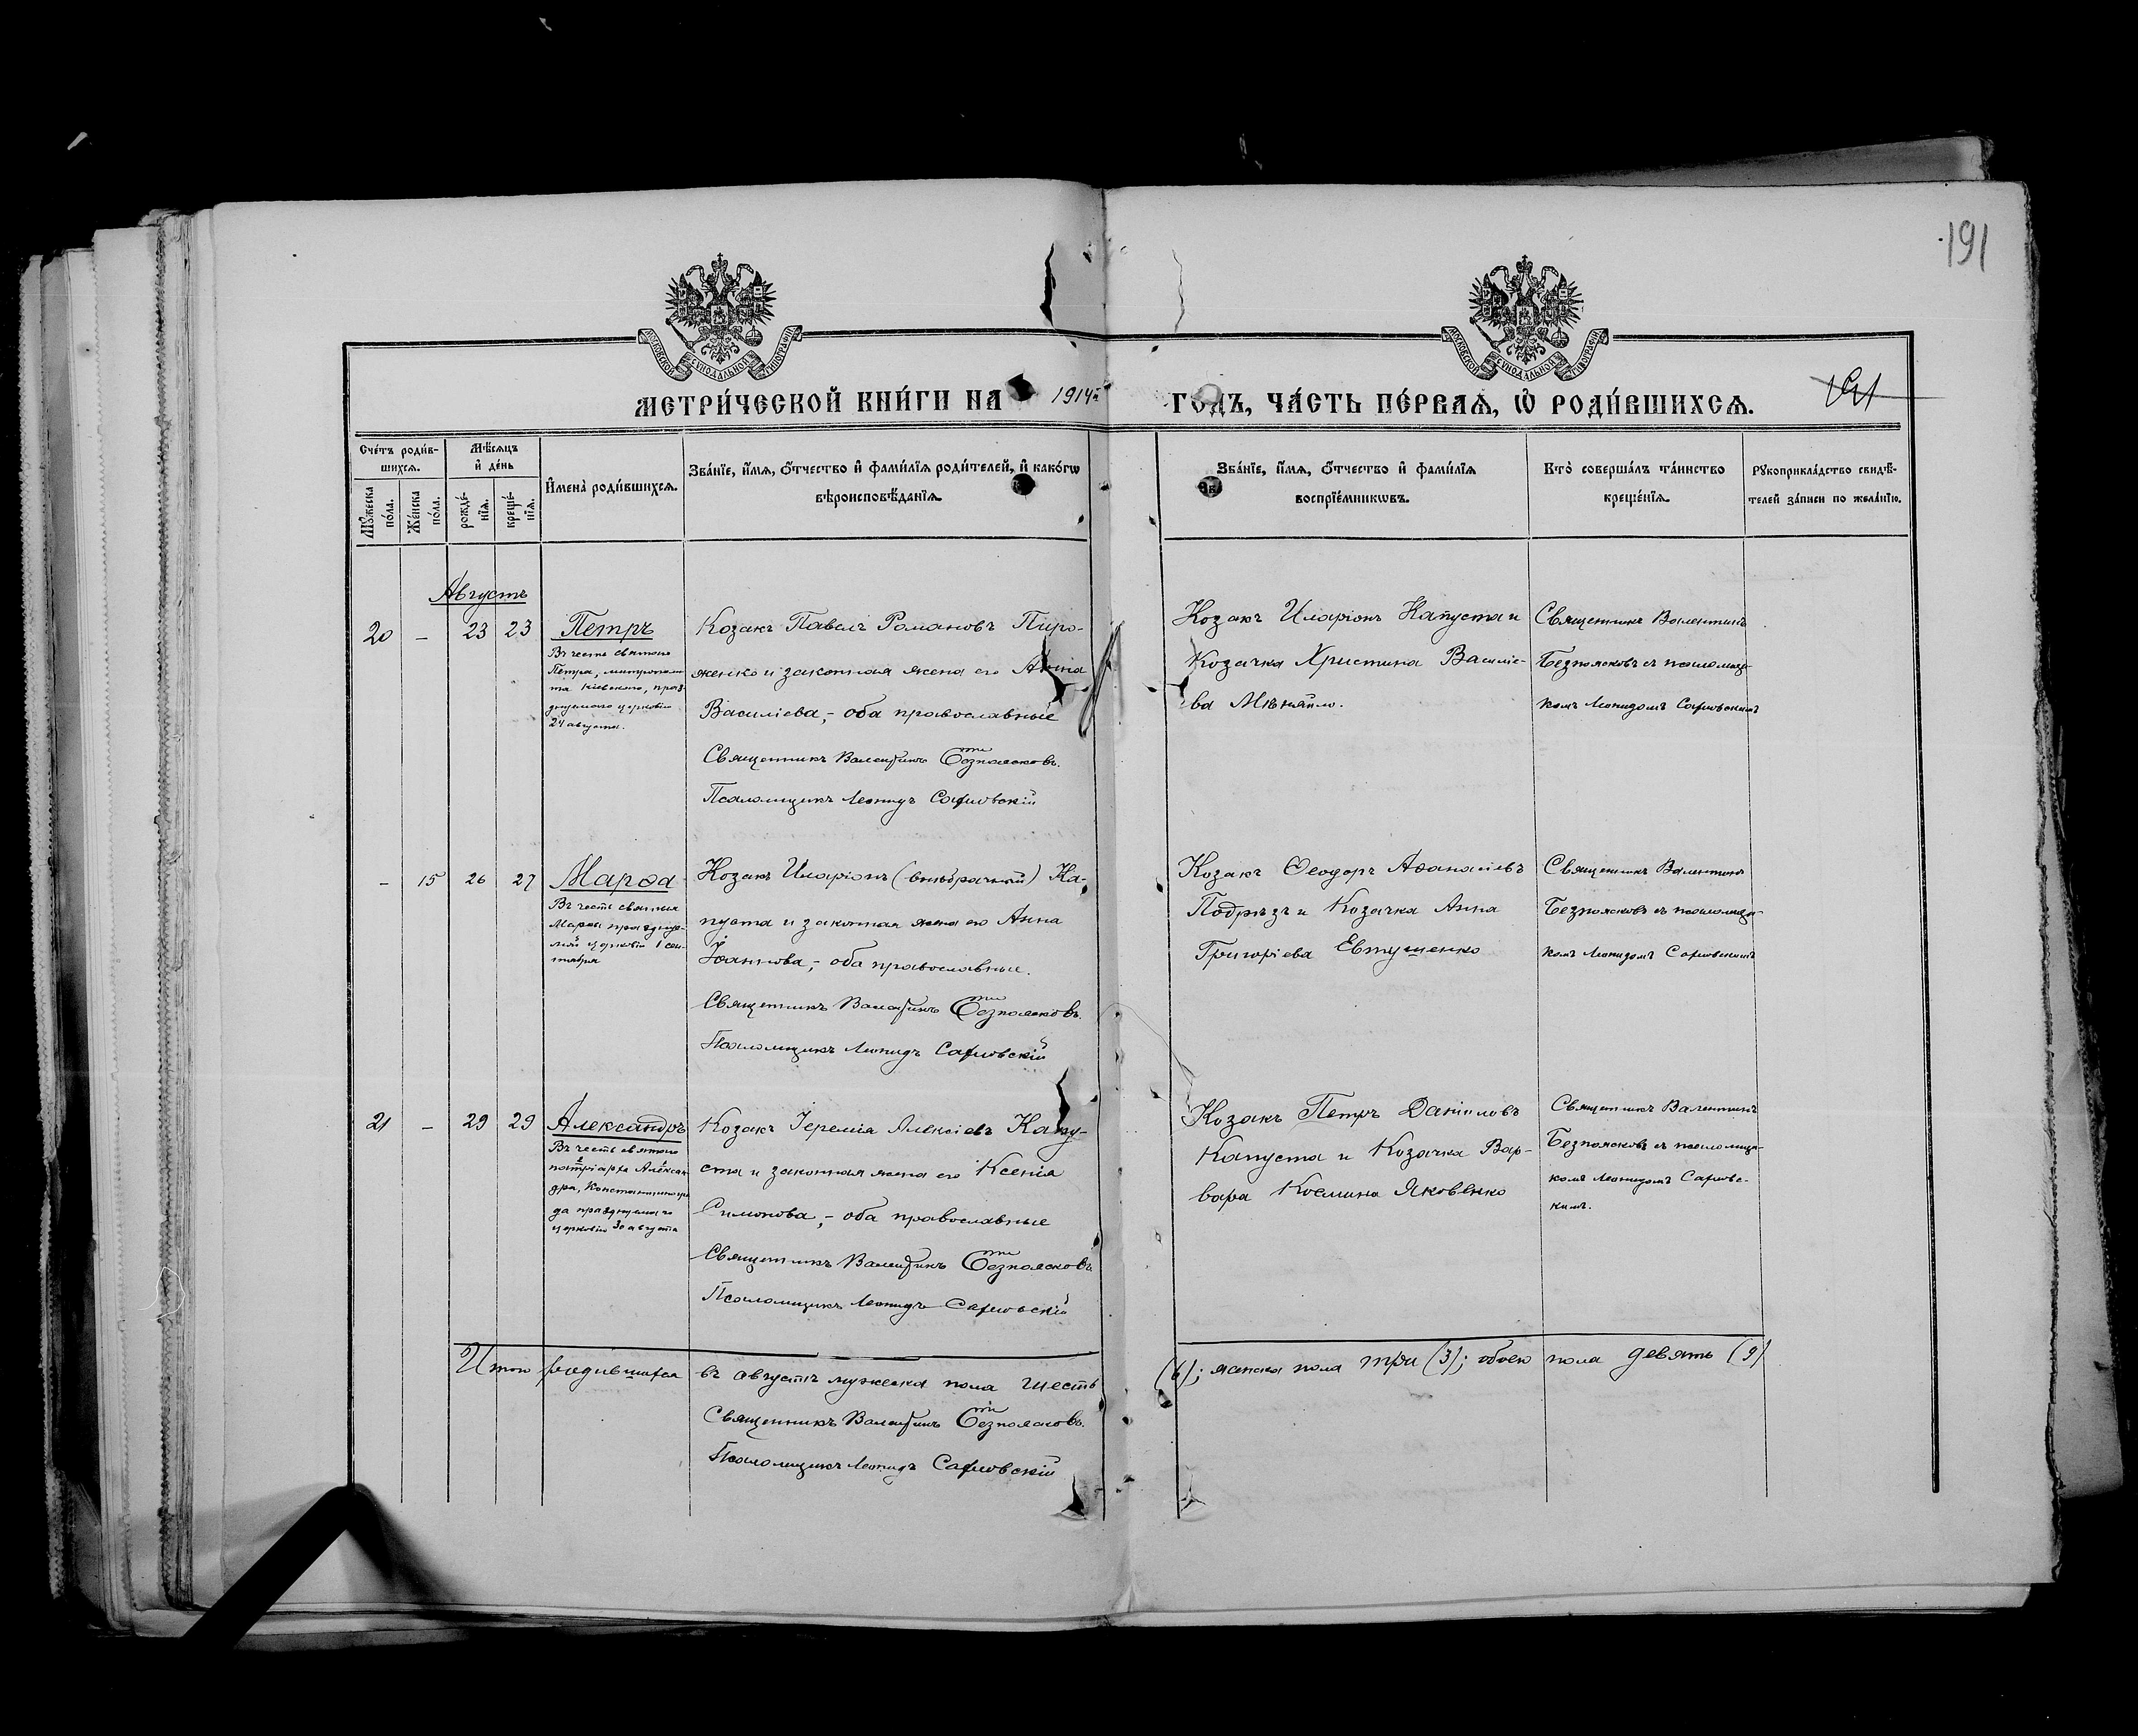 191
МОСКОВСКОЙ СѴНОДАЛЬНОЙ ТИПОГРАФІИ
МОСКОВСКОЙ СѴНОДАЛЬНОЙ ТИПОГРАФІИ
МЕТРИ́ЧЕСКОЙ КНИ́ГИ НА 1914й ГОДЪ, ЧА́СТЬ ПЕ́РВАѦ, Ѡ҆ РОДИ́ВШИХСѦ.
191
Сче́тъ роди́в-
шихсѧ.
Мꙋ́жеска
по́ла.
Же́нска
по́ла.
Мѣ́сѧцъ
и҆ де́нь
рожде́-
нїѧ.
креще́-
нїѧ.
И҆мена̀ роди́вшихсѧ.
Зва́нїе, и҆́мѧ, ѻ҆́тчество и҆ фами́лїѧ роди́телей, и҆ како́гѡ
вѣроисповѣ́данїѧ.
Зва́нїе, и҆́мѧ, ѻ҆́тчество и҆ фами́лїѧ
воспрїе́мникѡвъ.
Кто̀ соверша́лъ та́инство
креще́нїѧ.
Рꙋкоприкла́дство свидѣ́-
телей за́писи по жела́нїю.
Августъ
20 – 23 23 Петръ
Въ честь святого
Петра, митрополи
та кіевского, празд-
днуемого церковію
24 августа.
Козакъ Павелъ Романовъ Пиро-
женко и законная жена его Анна
Василіева,- оба православные
Священникъ Валентинъ Безпоясковъ.
Псаломщикъ Леонидъ Сафновскій
Козакъ Иларіонъ Капуста и
Козачка Христина Василіе-
ва Мѣняйло.
Священникъ Валентинъ
Безпоясковъ съ псаломщи-
комъ Леонидомъ Сафновскимъ
– 15 26 27 Марѳа
Въ честь святыя
Марѳы празднуе-
мой церковію 1 сен-
тября
Козакъ Иларіонъ (внѣбрачный) Ка-
пуста и законная жена его Анна
Іоаннова,- оба православные.
Священникъ Валентинъ Безпоясковъ.
Псаломщикъ Леонидъ Сафновскій
Козакъ Ѳеодоръ Аѳанасіевъ
Подрѣзъ и Козачка Анна
Григоріева Евтушенко
Священникъ Валентинъ
Безпоясковъ съ псаломщи-
комъ Леонидомъ Сафновскимъ
21 – 29 29 Александръ
Въ честь святого
патріарха Алексан
дра, Константиногра
да празднуемаго
церковію 30 августа
Козакъ Іеремія Алексіевъ Капу-
ста и законная жена его Ксенія
Симонова,- оба православные
Священникъ Валентинъ Безпоясковъ
Псаломщикъ Леонидъ Сафновскій
Козакъ Петръ Даніиловъ
Капуста и Козачка Вар-
вара Космина Яковенко
Священникъ Валентинъ
Безпоясковъ съ псаломщи-
комъ Леонидомъ Сафновс-
кимъ.
Итого родившихся въ августѣ мужеска пола шесть (6); женска пола три (3); обоего пола девять (9)
Священникъ Валентинъ Безпоясковъ.
Псаломщикъ Леонидъ Сафновскій